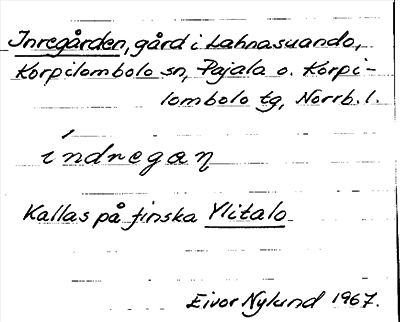 Inregården, gård i Lahnasuando,
Korpilombolo sn, Pajala o. Korpi-
lombolo tg, Norrb. l.
índregaṇ
Kallas på finska Ylitalo
Eivor Nylund 1967.